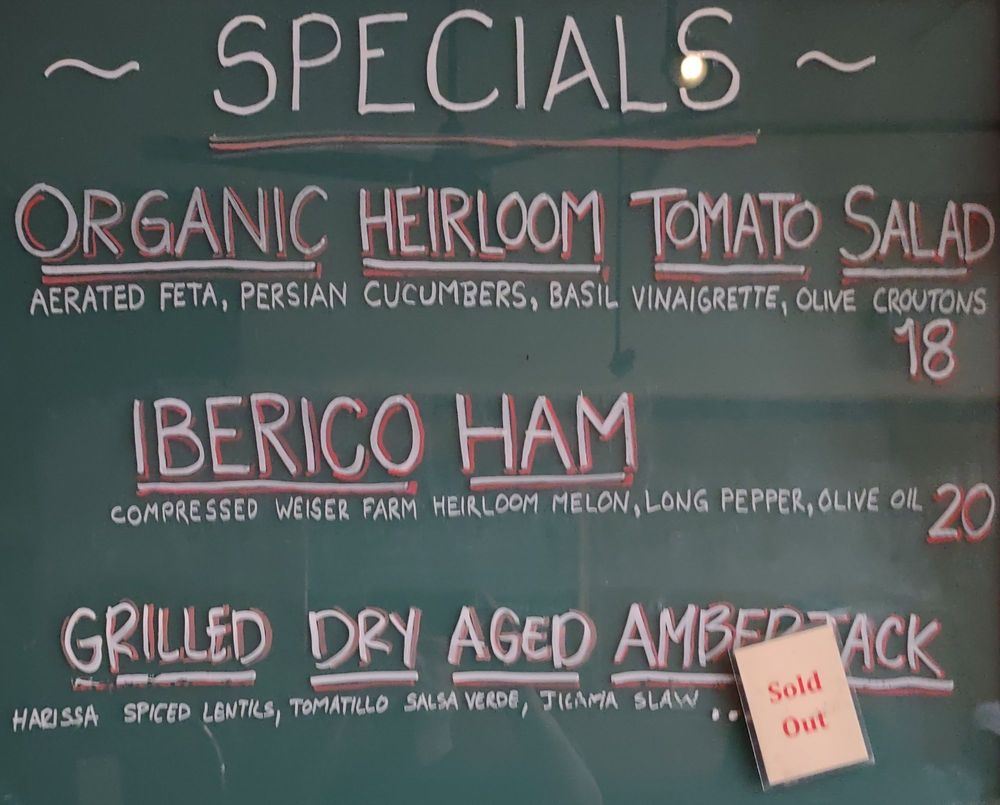 ~ SPECIALS ~
ORGANIC HEIRLOOM TOMATO SALAD
AERATED FETA, PERSIAN CUCUMBERS, BASIL VINAIGRETTE, OLIVE CROUTONS
18
IBERICO HAM
COMPRESSED WEISER FARM HEIRLOOM MELON, LONG PEPPER, OLIVE OIL 20
GRILLED DRY AGED AMBERJACK
HARISSA SPICED LENTILS, TOMATILLO SALSA VERDE, JICAMA SLAW ..
Sold
Out